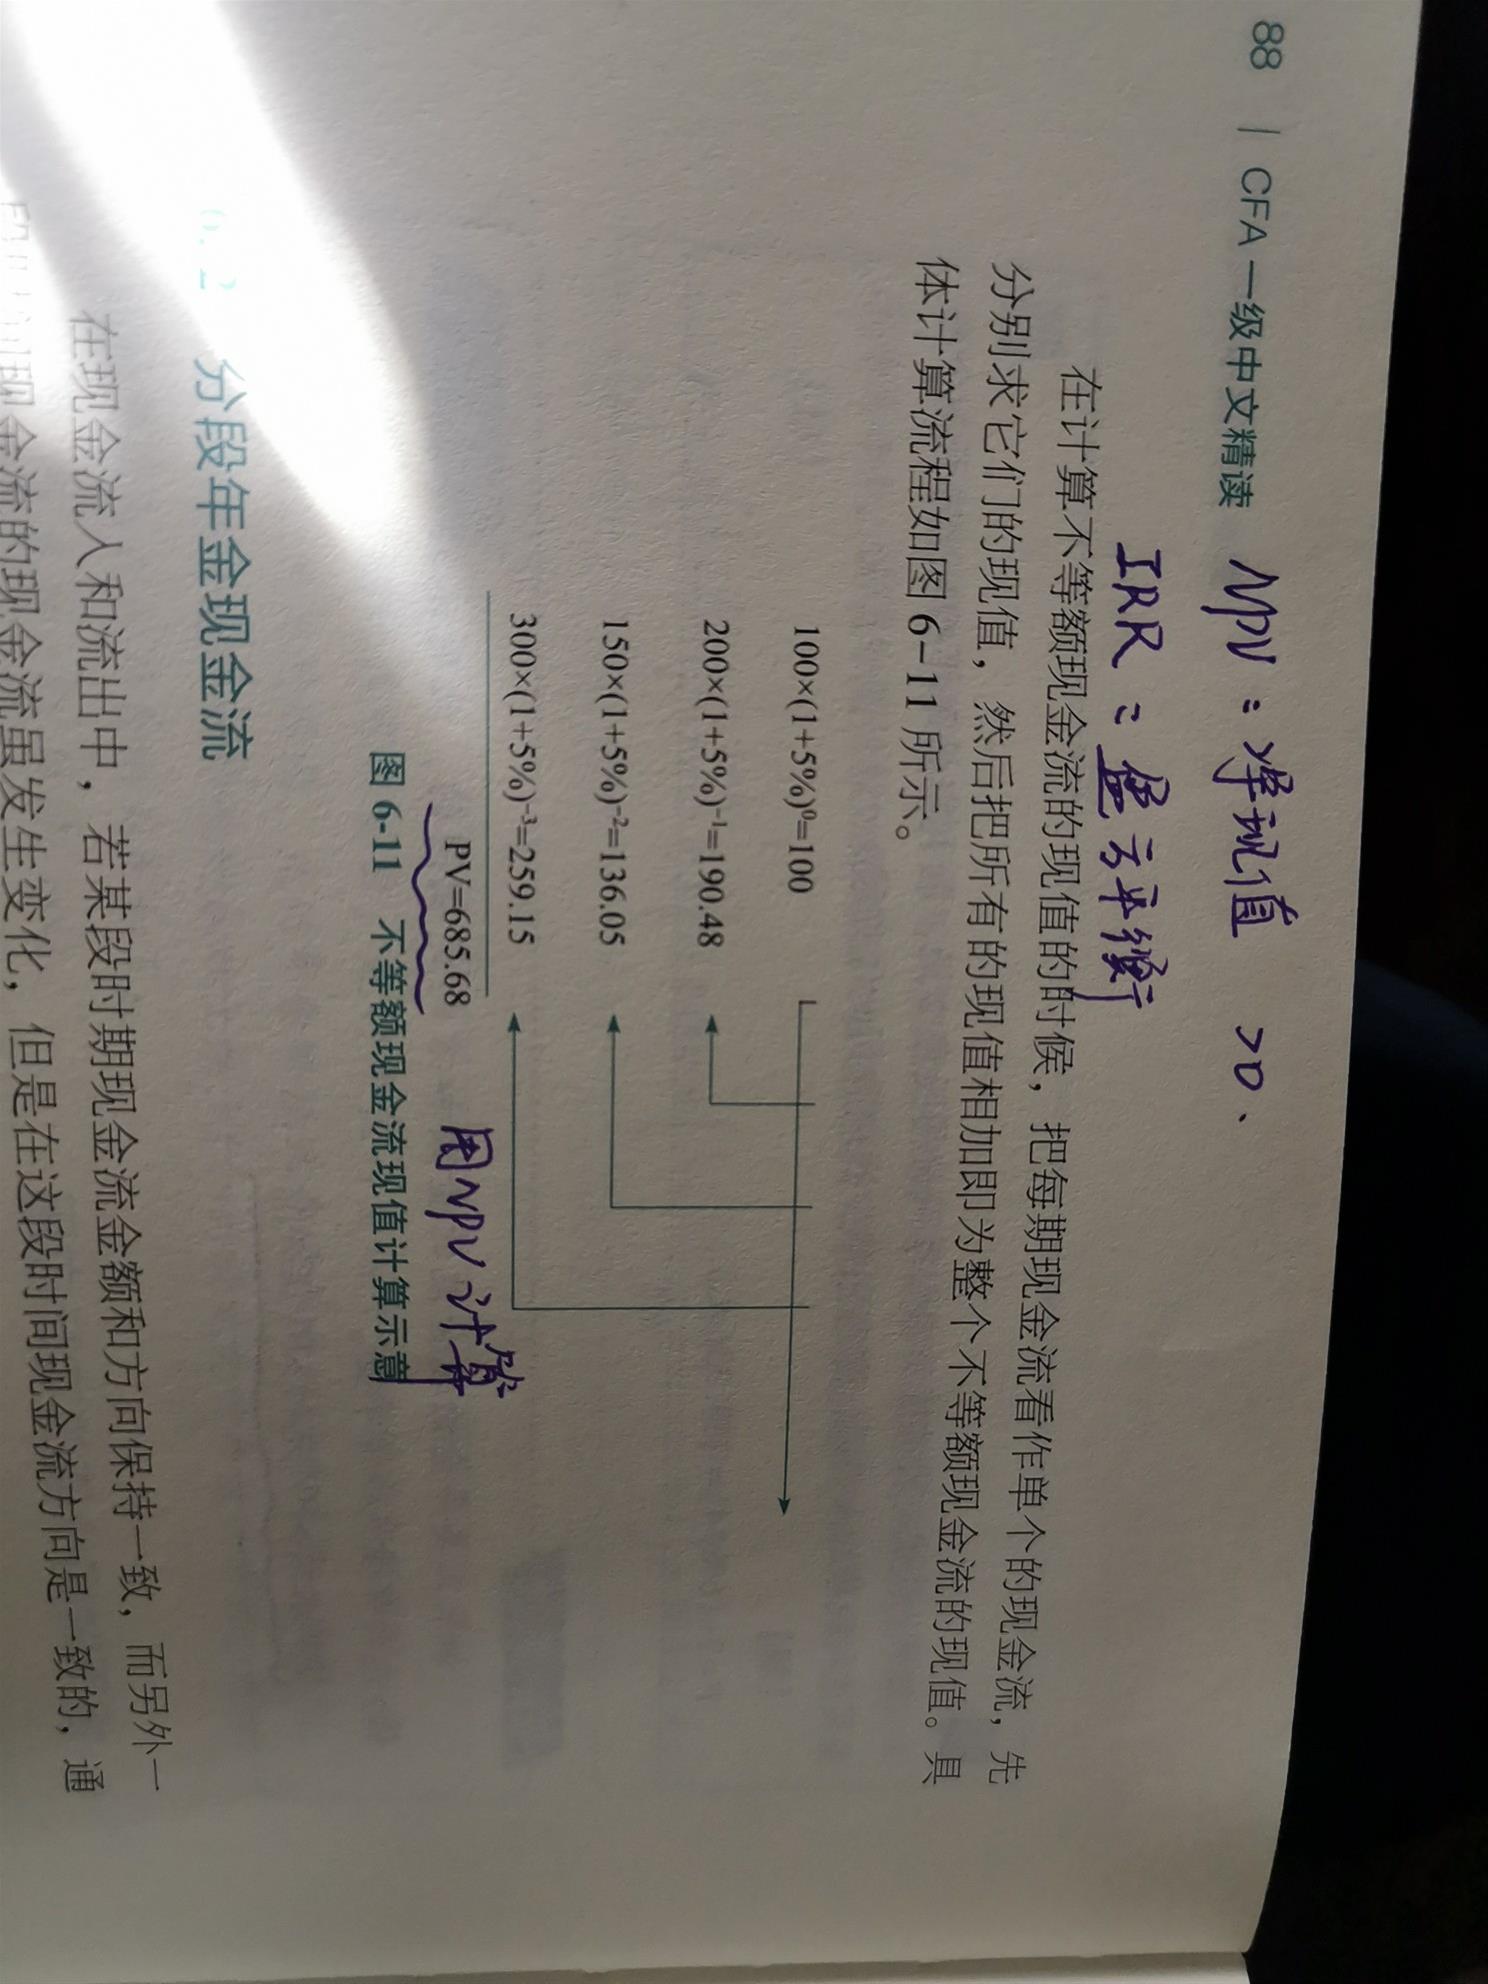 88 | CFA一级中文精读
NPV：净现值 >0、
IRR：盈亏平衡
在计算不等额现金流的现值的时候，把每期现金流看作单个的现金流，先
分别求它们的现值，然后把所有的现值相加即为整个不等额现金流的现值。具
体计算流程如图 6-11 所示。
100×(1+5%)⁰=100
200×(1+5%)⁻¹=190.48
150×(1+5%)⁻²=136.05
300×(1+5%)⁻³=259.15
PV=685.68
用NPV计算
图 6-11 不等额现金流现值计算示意
6.2 分段年金现金流
在现金流入和流出中，若某段时期现金流金额和方向保持一致，而另外一
现金流的现金流虽发生变化，但是在这段时间现金流方向是一致的，通